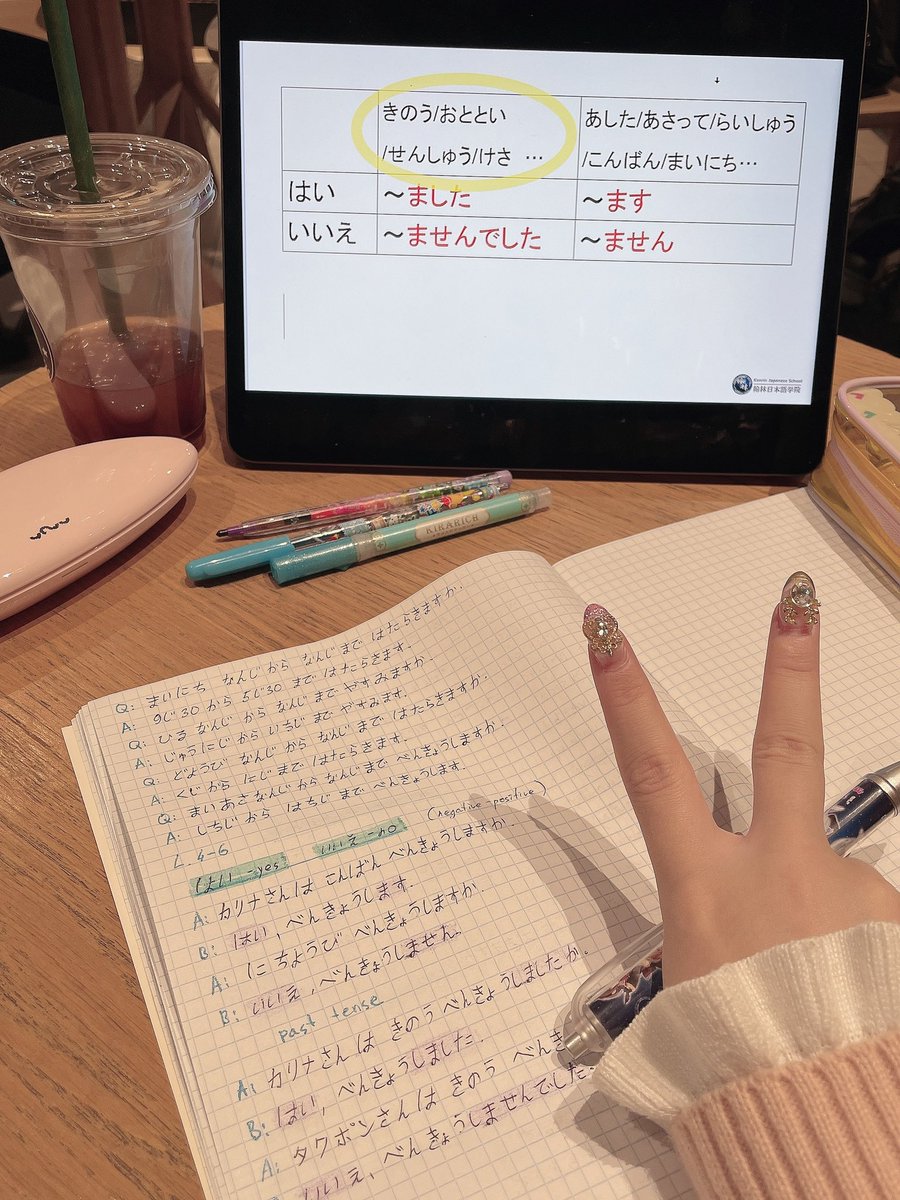 きのう/おととい
/せんしゅう/けさ …
あした/あさって/らいしゅう
/こんばん/まいにち…
はい
～ました
～ます
いいえ
～ませんでした
～ません
Kanrin Japanese School
翰林日本語学院
KIRARICH
Q: まいにち なんじ から なんじ まで はたらきますか.
A: 9じ30 から 5じ30 まで はたらきます.
Q: ひる なんじ から なんじ まで やすみますか.
A: じゅうにじ から いちじ まで やすみます.
Q: どようび なんじ から なんじ まで はたらきますか.
A: くじ から にじ まで はたらきます.
Q: まいあさ なんじ から なんじ まで べんきょうしますか.
A: しちじ から はちじ まで べんきょうします.
L 4-6
はい =yes: いいえ =no (negative - positive)
A: カリナさんは こんばん べんきょうしますか.
B: はい, べんきょうします.
A: にちようび べんきょうしますか.
B: いいえ, べんきょうしません.
past tense
A: カリナさん は きのう べんきょうしましたか.
B: はい, べんきょうしました.
A: タワポンさん は きのう べんき
いいえ, べんきょうしませんでした.